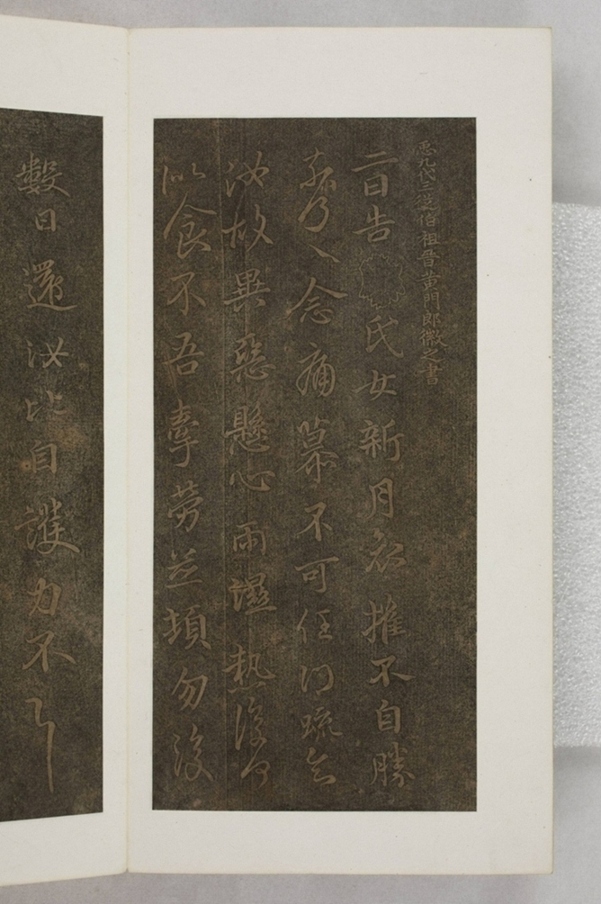 𢘑九代三從伯祖晉黃門郎徽之書
二日告氏女新月哀摧不自勝
奈何〻念痛慕不可任得疏知
汝故異惡懸心雨濕熱復何
似食不吾牽勞並頓勿復
數日還汝比自護力不一一